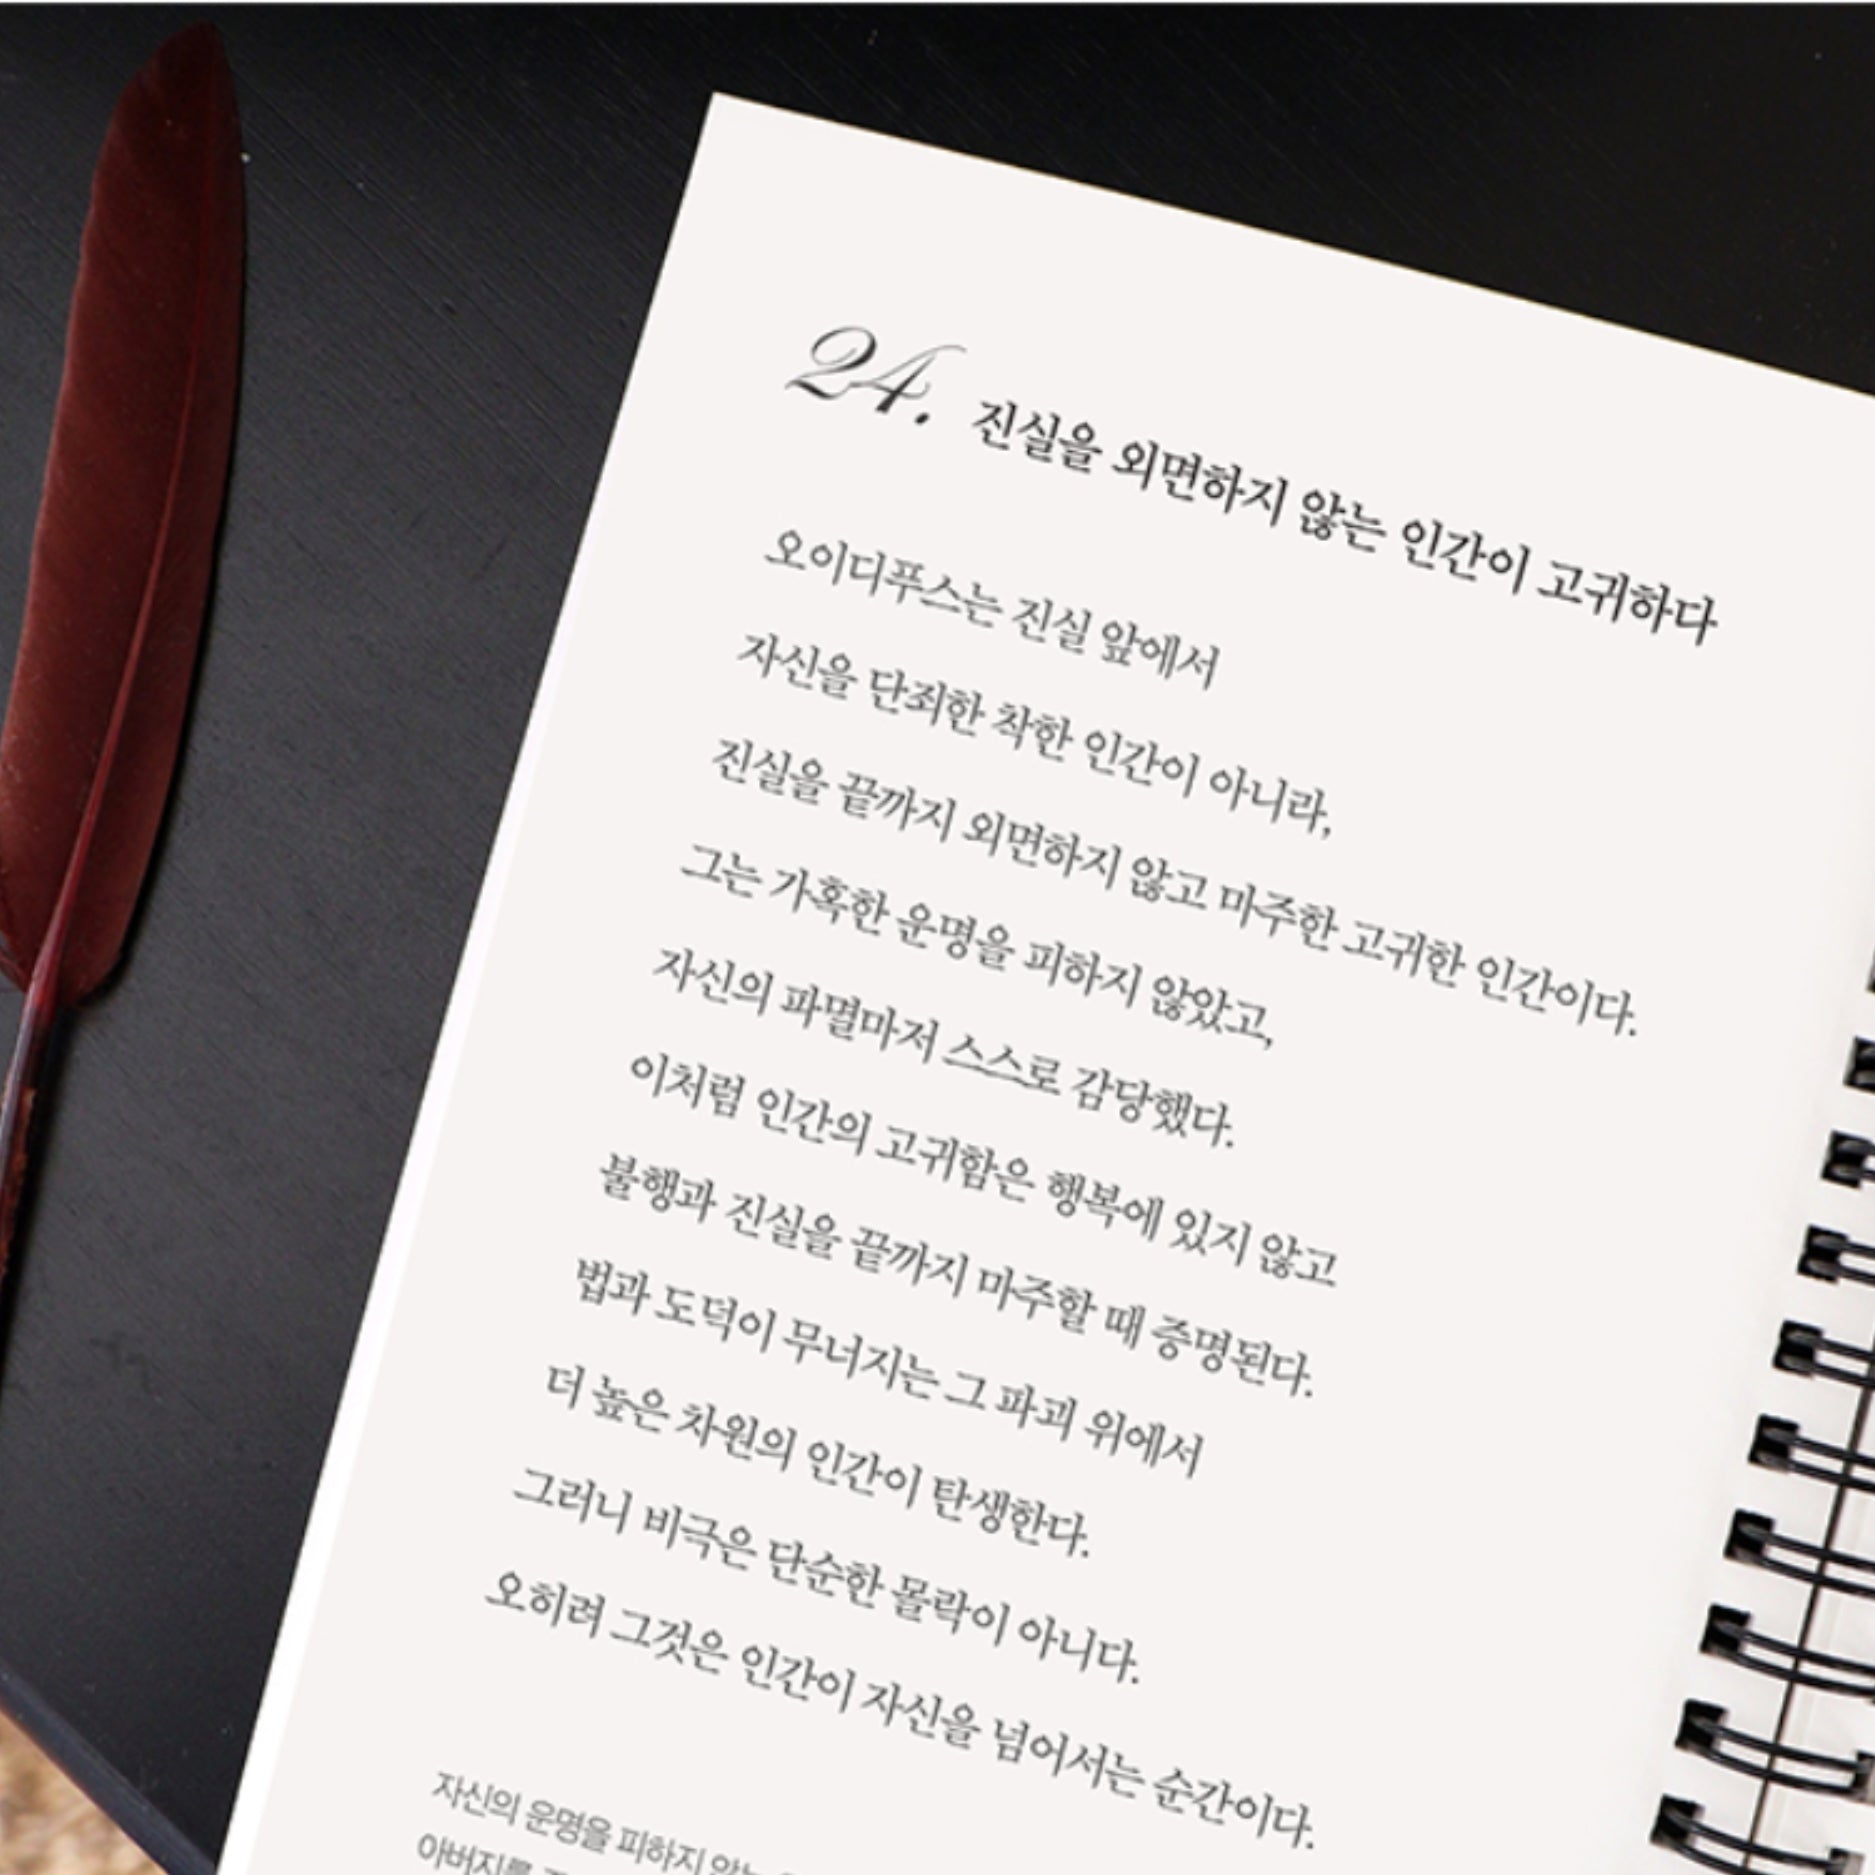 24. 진실을 외면하지 않는 인간이 고귀하다
오이디푸스는 진실 앞에서
자신을 단죄한 착한 인간이 아니라,
진실을 끝까지 외면하지 않고 마주한 고귀한 인간이다.
그는 가혹한 운명을 피하지 않았고,
자신의 파멸마저 스스로 감당했다.
이처럼 인간의 고귀함은 행복에 있지 않고
불행과 진실을 끝까지 마주할 때 증명된다.
법과 도덕이 무너지는 그 파괴 위에서
더 높은 차원의 인간이 탄생한다.
그러니 비극은 단순한 몰락이 아니다.
오히려 그것은 인간이 자신을 넘어서는 순간이다.
자신의 운명을 피하지 않는
아버지를